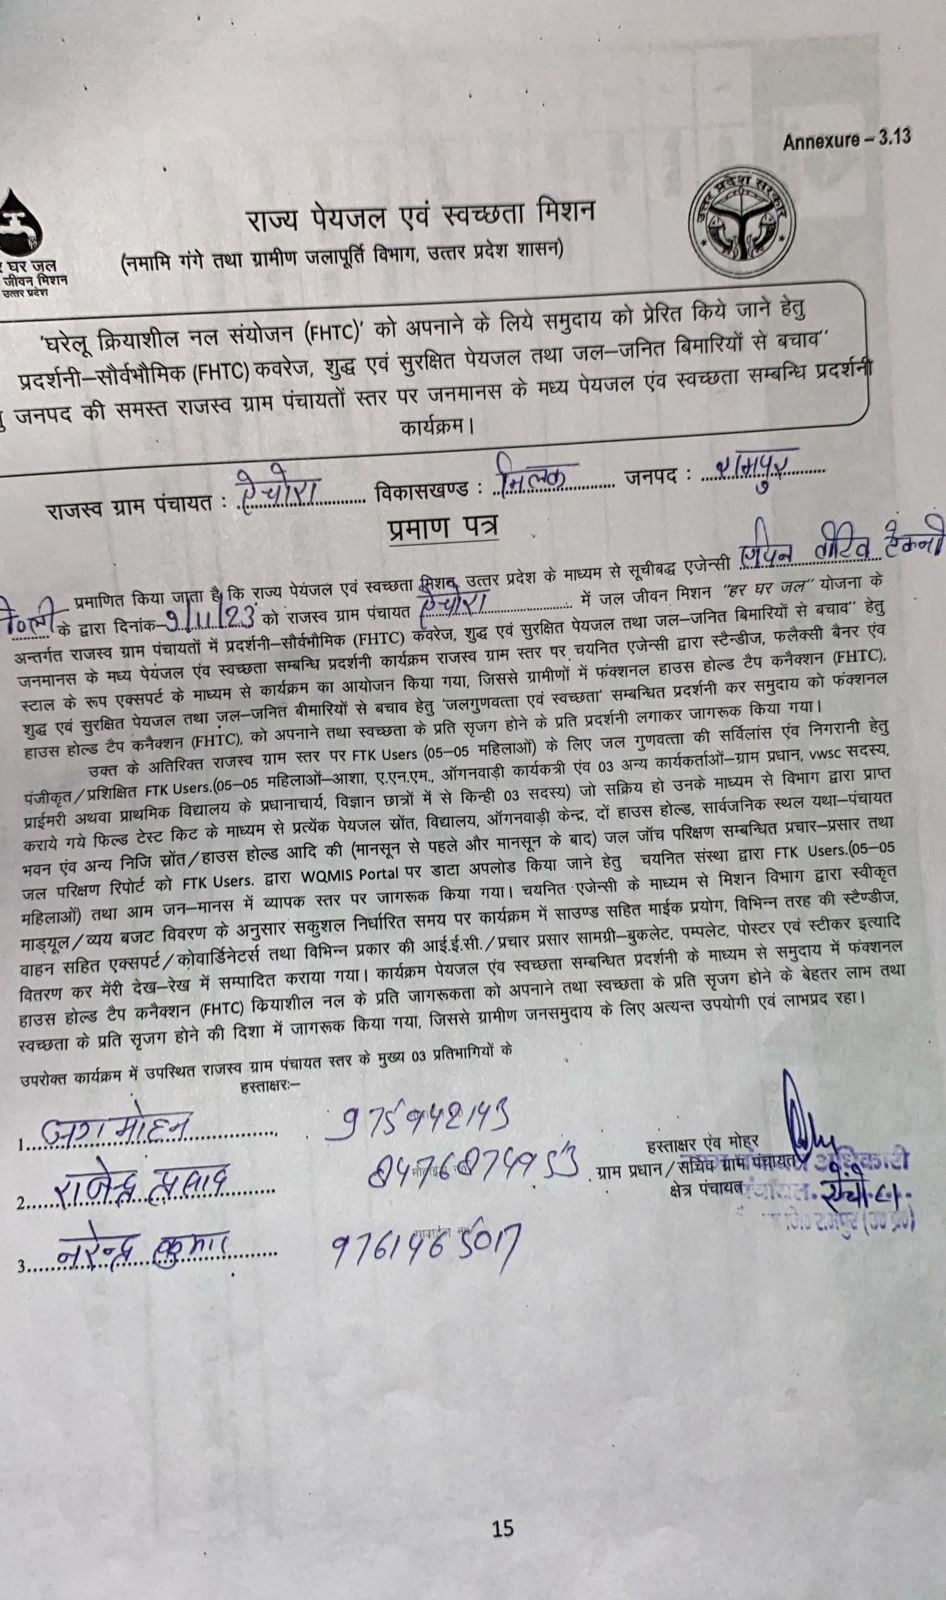 Annexure – 3.13
राज्य पेयजल एवं स्वच्छता मिशन
(नमामि गंगे तथा ग्रामीण जलापूर्ति विभाग, उत्तर प्रदेश शासन)
उत्तर प्रदेश सरकार
घर जल
जीवन मिशन
उत्तर प्रदेश
'घरेलू क्रियाशील नल संयोजन (FHTC)' को अपनाने के लिये समुदाय को प्रेरित किये जाने हेतु
प्रदर्शनी–सौर्वभौमिक (FHTC) कवरेज, शुद्ध एवं सुरक्षित पेयजल तथा जल–जनित बिमारियों से बचाव"
जनपद की समस्त राजस्व ग्राम पंचायतों स्तर पर जनमानस के मध्य पेयजल एंव स्वच्छता सम्बन्धि प्रदर्शनी
कार्यक्रम।
राजस्व ग्राम पंचायत : ऐचोरा विकासखण्ड : मिलक जनपद : रामपुर
प्रमाण पत्र
प्रमाणित किया जाता है कि राज्य पेयंजल एवं स्वच्छता मिशन, उत्तर प्रदेश के माध्यम से सूचीबद्ध एजेन्सी
के द्वारा दिनांक–9/11/23 को राजस्व ग्राम पंचायत ऐचोरा में जल जीवन मिशन "हर घर जल" योजना के
अन्तर्गत राजस्व ग्राम पंचायतों में प्रदर्शनी–सौर्वभौमिक (FHTC) कवरेज, शुद्ध एवं सुरक्षित पेयजल तथा जल–जनित बिमारियों से बचाव" हेतु
जनमानस के मध्य पेयजल एंव स्वच्छता सम्बन्धि प्रदर्शनी कार्यक्रम राजस्व ग्राम स्तर पर चयनित एजेन्सी द्वारा स्टैन्डीज, फलैक्सी बैनर एंव
स्टाल के रूप एक्सपर्ट के माध्यम से कार्यक्रम का आयोजन किया गया, जिससे ग्रामीणों में फंक्शनल हाउस होल्ड टैप कनैक्शन (FHTC),
शुद्ध एवं सुरक्षित पेयजल तथा जल–जनित बीमारियों से बचाव हेतु 'जलगुणवत्ता एवं स्वच्छता' सम्बन्धित प्रदर्शनी कर समुदाय को फंक्शनल
हाउस होल्ड टैप कनैक्शन (FHTC), को अपनाने तथा स्वच्छता के प्रति सृजग होने के प्रति प्रदर्शनी लगाकर जागरूक किया गया।
उक्त के अतिरिक्त राजस्व ग्राम स्तर पर FTK Users (05–05 महिलाओं) के लिए जल गुणवत्ता की सर्विलांस एंव निगरानी हेतु
पंजीकृत/प्रशिक्षित FTK Users.(05–05 महिलाओं–आशा, ए.एन.एम., ऑगनवाड़ी कार्यकत्री एंव 03 अन्य कार्यकर्ताओं–ग्राम प्रधान, vwsc सदस्य,
प्राईमरी अथवा प्राथमिक विद्यालय के प्रधानाचार्य, विज्ञान छात्रों में से किन्ही 03 सदस्य) जो सक्रिय हो उनके माध्यम से विभाग द्वारा प्राप्त
कराये गये फिल्ड टेस्ट किट के माध्यम से प्रत्येंक पेयजल स्रोंत, विद्यालय, ऑगनवाड़ी केन्द्र, दों हाउस होल्ड, सार्वजनिक स्थल यथा–पंचायत
भवन एंव अन्य निजि स्रोंत/हाउस होल्ड आदि की (मानसून से पहले और मानसून के बाद) जल जॉच परिक्षण सम्बन्धित प्रचार–प्रसार तथा
जल परिक्षण रिपोर्ट को FTK Users. द्वारा WQMIS Portal पर डाटा अपलोड किया जाने हेतु चयनित संस्था द्वारा FTK Users.(05–05
महिलाओं) तथा आम जन–मानस में व्यापक स्तर पर जागरूक किया गया। चयनित एजेन्सी के माध्यम से मिशन विभाग द्वारा स्वीकृत
माड्यूल/व्यय बजट विवरण के अनुसार सकुशल निर्धारित समय पर कार्यक्रम में साउण्ड सहित माईक प्रयोग, विभिन्न तरह की स्टैण्डीज,
वाहन सहित एक्सपर्ट/कोवार्डिनेटर्स तथा विभिन्न प्रकार की आई.ई.सी./प्रचार प्रसार सामग्री–बुकलेट, पम्पलेट, पोस्टर एवं स्टीकर इत्यादि
वितरण कर मेंरी देख–रेख में सम्पादित कराया गया। कार्यक्रम पेयजल एंव स्वच्छता सम्बन्धित प्रदर्शनी के माध्यम से समुदाय में फंक्शनल
हाउस होल्ड टैप कनैक्शन (FHTC) कियाशील नल के प्रति जागरूकता को अपनाने तथा स्वच्छता के प्रति सृजग होने के बेहतर लाभ तथा
स्वच्छता के प्रति सृजग होने की दिशा में जागरूक किया गया, जिससे ग्रामीण जनसमुदाय के लिए अत्यन्त उपयोगी एवं लाभप्रद रहा।
उपरोक्त कार्यक्रम में उपस्थित राजस्व ग्राम पंचायत स्तर के मुख्य 03 प्रतिभागियों के
हस्ताक्षरः–
1. जगमोहन 975942143
2. राजेन्द्र प्रसाद 8476874953
3. नरेन्द्र कुमार 9761465017
हस्ताक्षर एंव मोहर
ग्राम प्रधान/सचिव ग्राम पंचायत अधिकारी
क्षेत्र पंचायत
रामपुर (उ० प्र०)
15